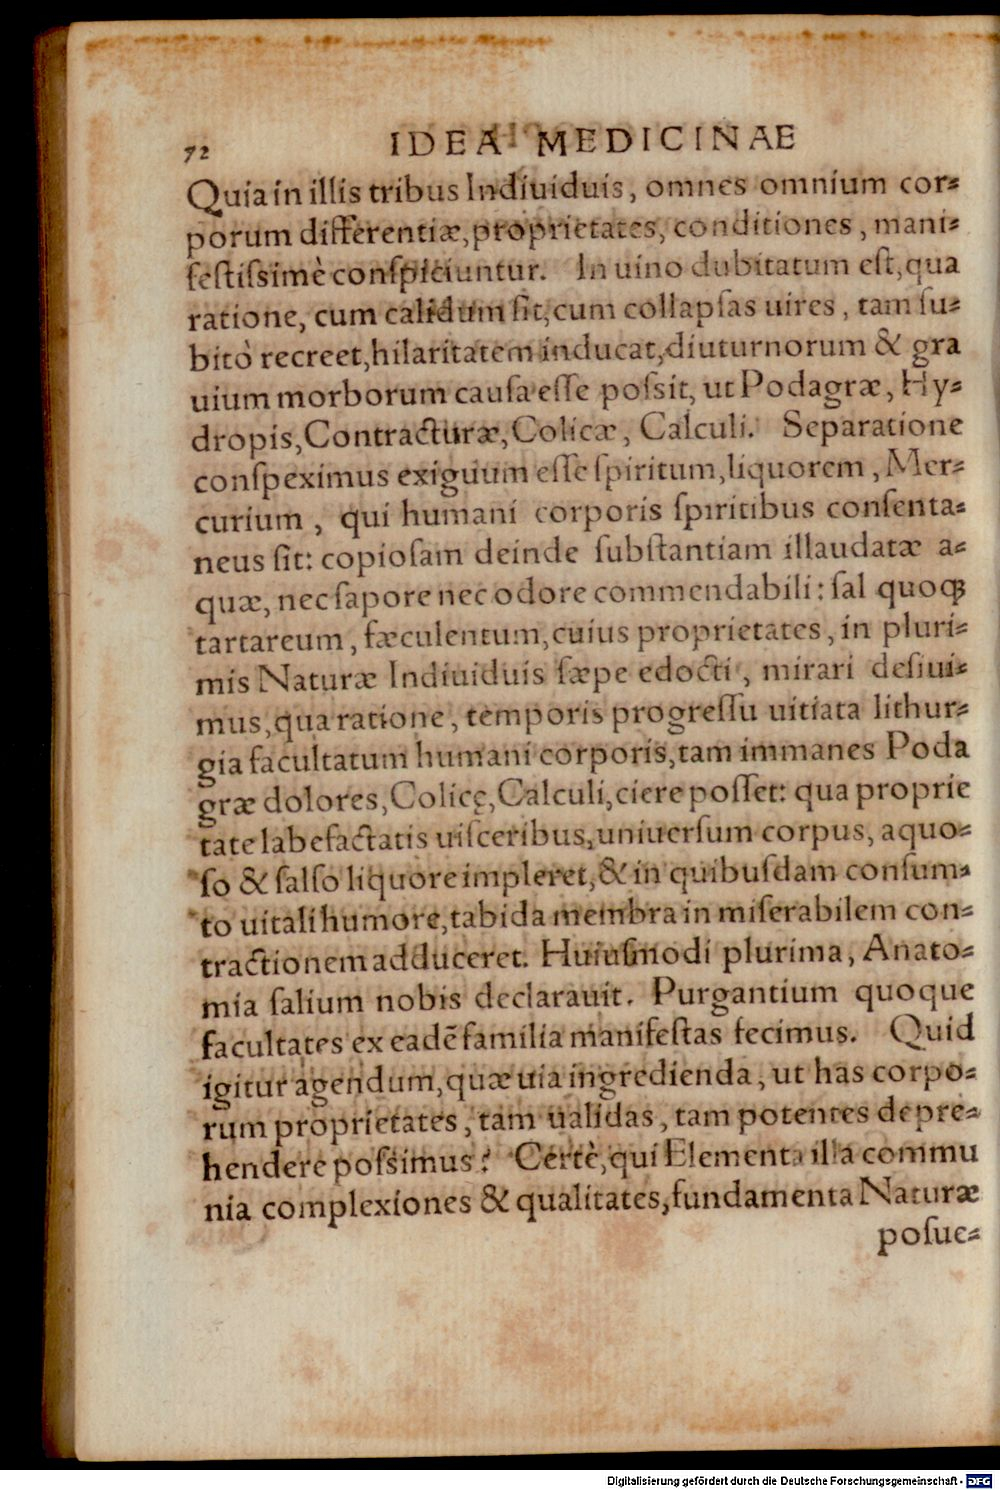 72 IDEA MEDICINAE
Quia in illis tribus Indiuiduis, omnes omnium cor⸗
porum differentiæ, proprietates, conditiones, mani⸗
feſtiſsimè conſpiciuntur. In uino dubitatum eſt, qua
ratione, cum calidum ſit, cum collapſas uires, tam ſu⸗
bitò recreet, hilaritatem inducat, diuturnorum & gra
uium morborum cauſa eſſe poſsit, ut Podagræ, Hy⸗
dropis, Contracturæ, Colicæ, Calculi. Separatione
conſpeximus exiguum eſſe ſpiritum, liquorem, Mer⸗
curium, qui humani corporis ſpiritibus conſenta⸗
neus ſit: copioſam deinde ſubſtantiam illaudatæ a⸗
quæ, nec ſapore nec odore commendabili: ſal quoqꝫ
tartareum, fæculentum, cuius proprietates, in pluri⸗
mis Naturæ Indiuiduis ſæpe edocti, mirari deſiui⸗
mus, qua ratione, temporis progreſſu uitiata lithur⸗
gia facultatum humani corporis, tam immanes Poda
græ dolores, Colicę, Calculi, ciere poſſet: qua proprie
tate labefactatis uiſceribus, uniuerſum corpus, aquo⸗
ſo & ſalſo liquore impleret, & in quibuſdam conſum⸗
to uitali humore, tabida membra in miſerabilem con⸗
tractionem adduceret. Huiuſmodi plurima, Anato⸗
mia ſalium nobis declarauit. Purgantium quoque
facultates ex eadē familia manifeſtas fecimus. Quid
igitur agendum, quæ uia ingredienda, ut has corpo⸗
rum proprietates, tam ualidas, tam potentes depre⸗
hendere poſsimus? Certè, qui Elementa illa commu
nia complexiones & qualitates, fundamenta Naturæ
poſue⸗
Digitalisierung gefördert durch die Deutsche Forschungsgemeinschaft - DFG